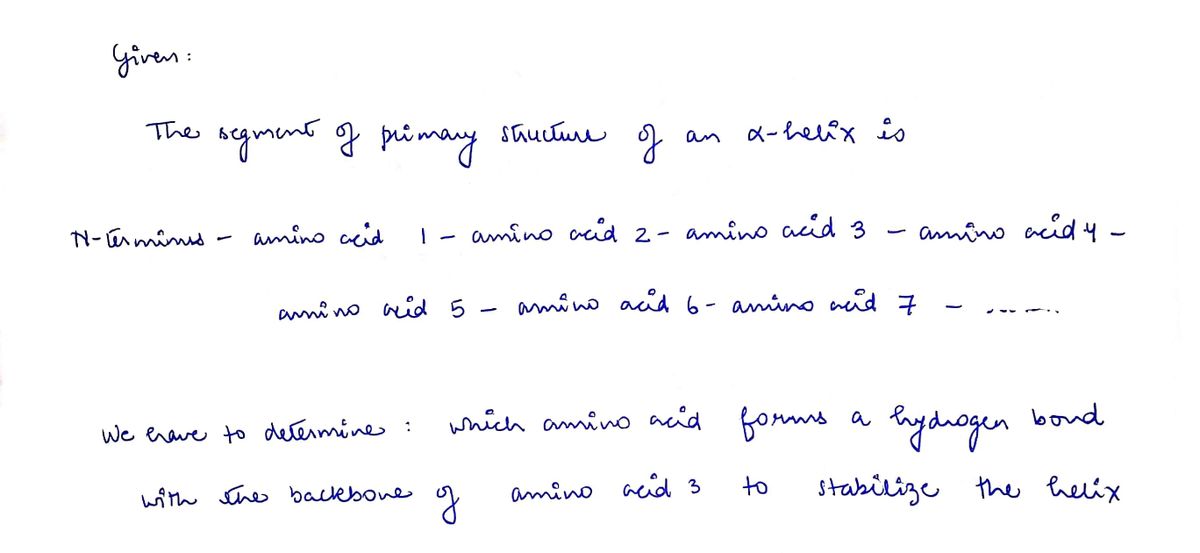 Given:
The segment of primary structure of an α-helix is
N-terminus - amino acid 1 - amino acid 2 - amino acid 3 - amino acid 4 -
amino acid 5 - amino acid 6 - amino acid 7 - .......
We have to determine : which amino acid forms a hydrogen bond
with the backbone of amino acid 3 to stabilize the helix